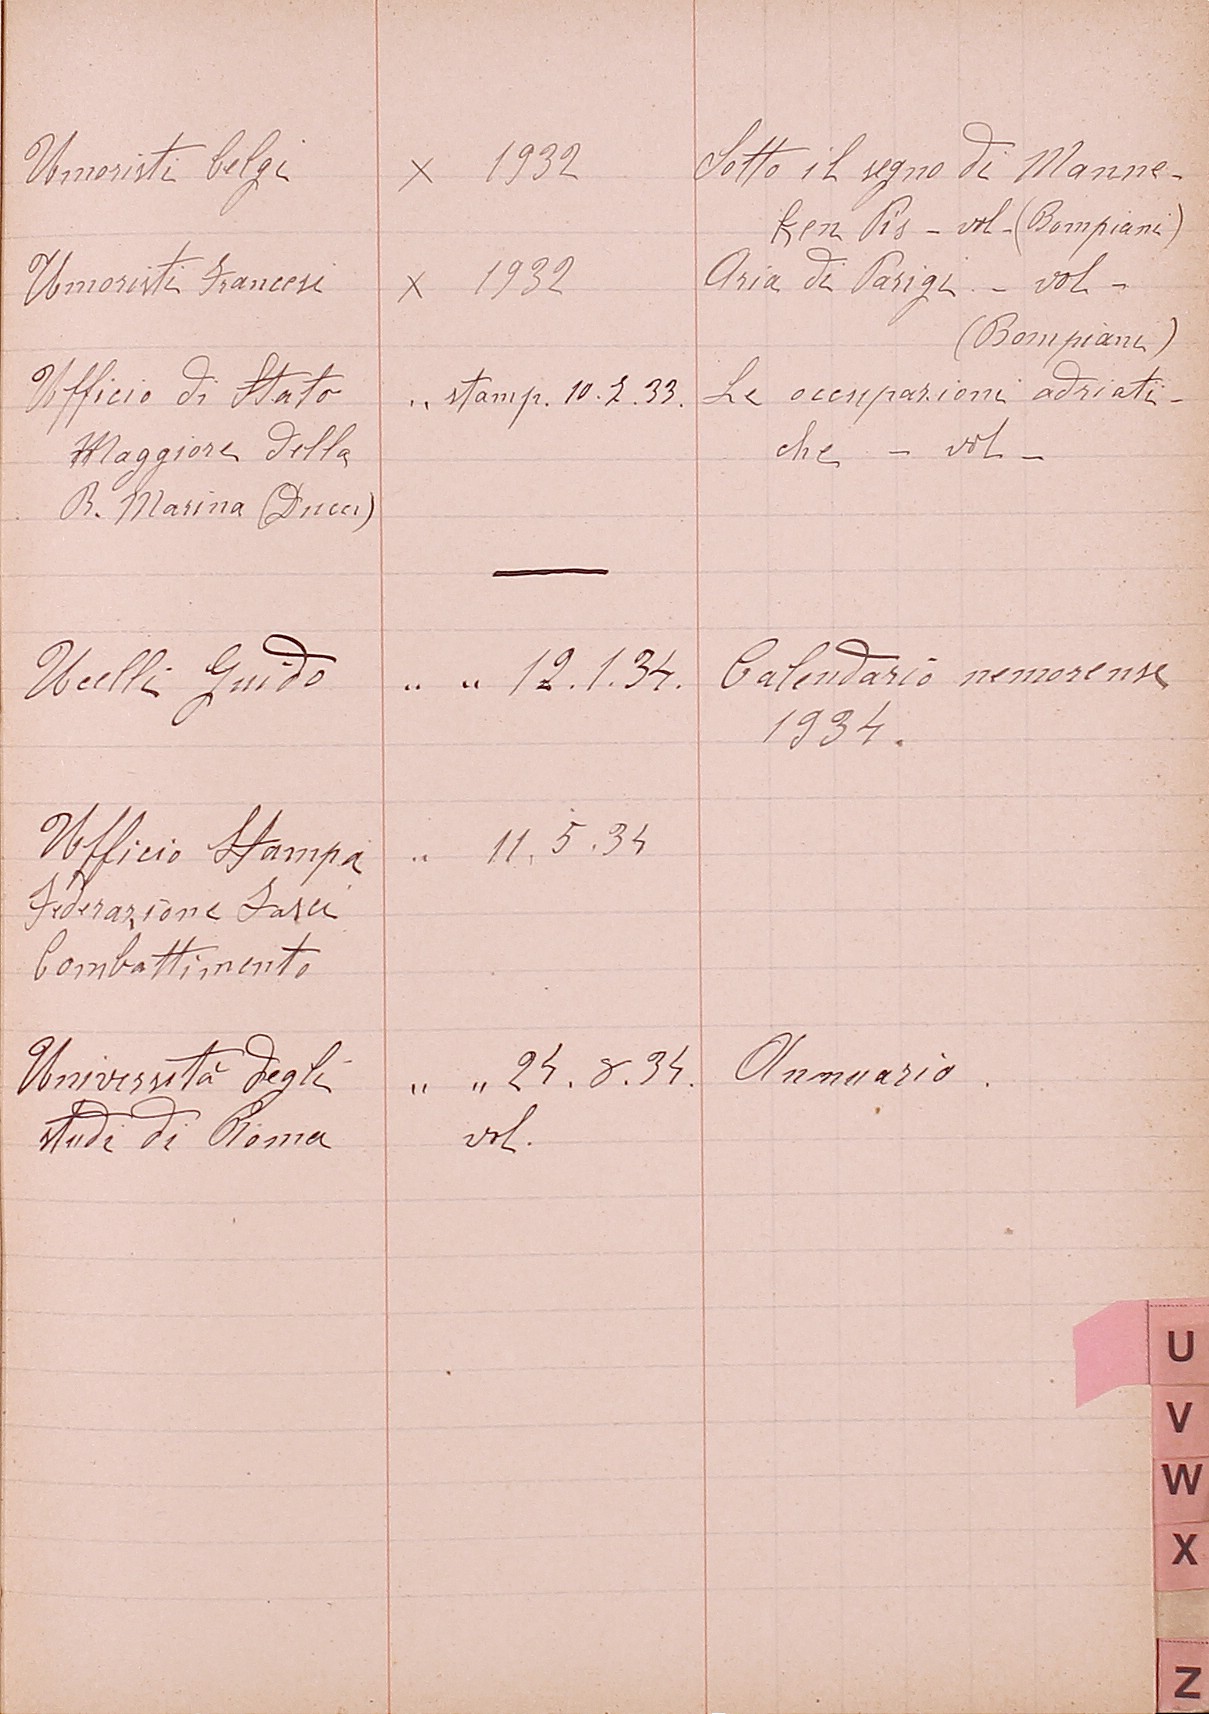 Umoristi belgi x 1932 Sotto il segno di Manne-
ken Pis - vol - (Bompiani)
Umoristi Francesi x 1932 Aria di Parigi - vol -
(Bompiani)
Ufficio di Stato „ stamp. 10.2.33. Le occupazioni adriati-
Maggiore della che - vol -
R. Marina (Ducci)
Ucelli Guido „ „ 12.1.34. Calendario nemorense
1934.
Ufficio Stampa „ 11.5.34
Federazione Fasci
Combattimento
Università degli „ „ 24.8.34. Annuario.
studi di Roma vol.
U
V
W
X
Z